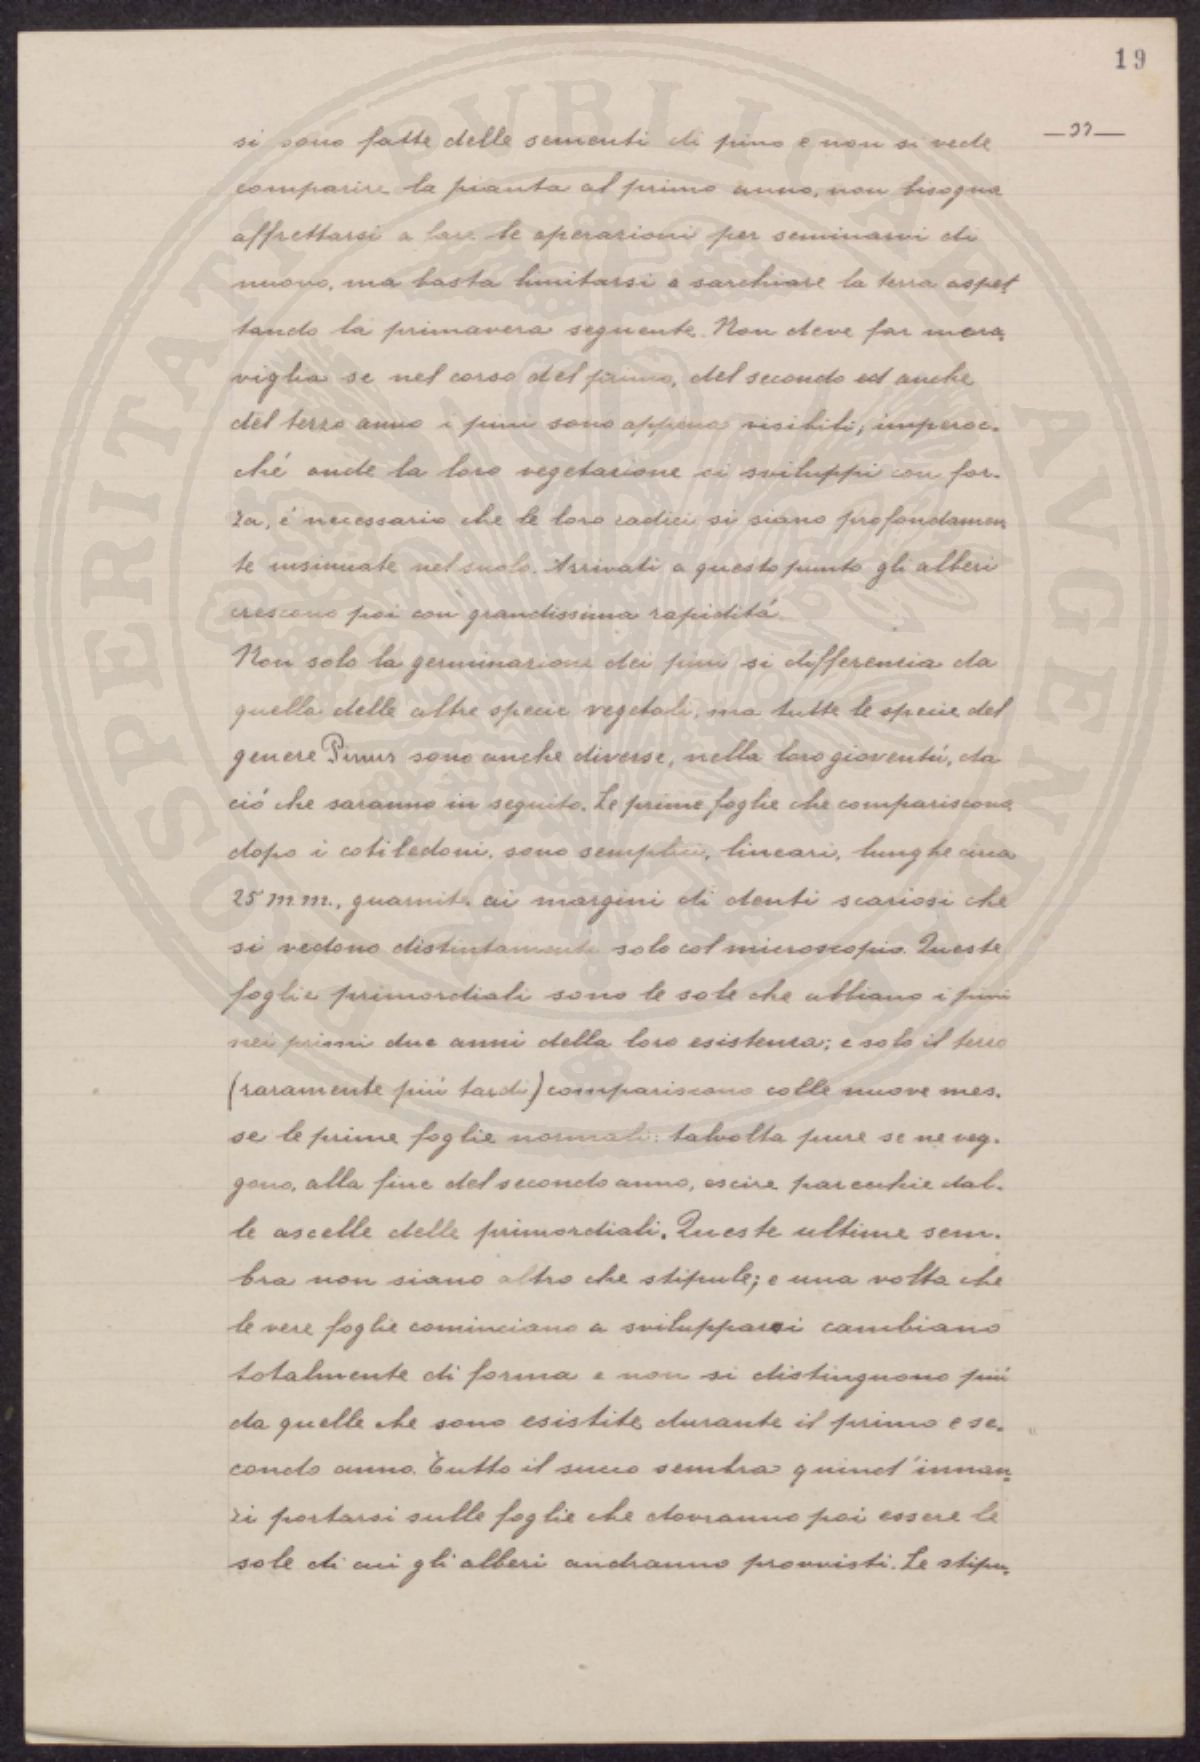 19
—33—
si sono fatte delle sementi di pino e non si vede
comparire la pianta al primo anno, non bisogna
affrettarsi a fare le operazioni per seminarvi di
nuovo, ma basta limitarsi a sarchiare la terra aspet
tando la primavera seguente. Non deve far mera-
viglia se nel corso del primo, del secondo ed anche
del terzo anno i pini sono appena visibili; imperoc-
ché onde la loro vegetazione si sviluppi con for-
za, é necessario che le loro radici si siano profondamen
te insinuate nel suolo. Arrivati a questo punto gli alberi
crescono poi con grandissima rapiditá.
Non solo la germinazione dei pini si differenzia da
quella delle altre specie vegetali, ma tutte le specie del
genere Pinus sono anche diverse, nella loro gioventú, da
ció che saranno in seguito. Le prime foglie che compariscono
dopo i cotiledoni, sono semplici, lineari, lunghe circa
25 m m., guarnite ai margini di denti scariosi che
si vedono distintamente solo col microscopio. Queste
foglie primordiali sono le sole che abbiano i pini
nei primi due anni della loro esistenza; e solo il terzo
(raramente piú tardi) compariscono colle nuove mes-
se le prime foglie normali: talvolta pure se ne veg-
gono, alla fine del secondo anno, escire parecchie dal-
le ascelle delle primordiali. Queste ultime sem-
bra non siano altro che stipule; e una volta che
le vere foglie cominciano a svilupparsi cambiano
totalmente di forma e non si distinguono piú
da quelle che sono esistite durante il primo e se-
condo anno. Tutto il succo sembra quind'innan-
zi portarsi sulle foglie che dovranno poi essere le
sole di cui gli alberi andranno provvisti. Le stipu-
PROSPERITATI PVBLICAE AVGENDAE